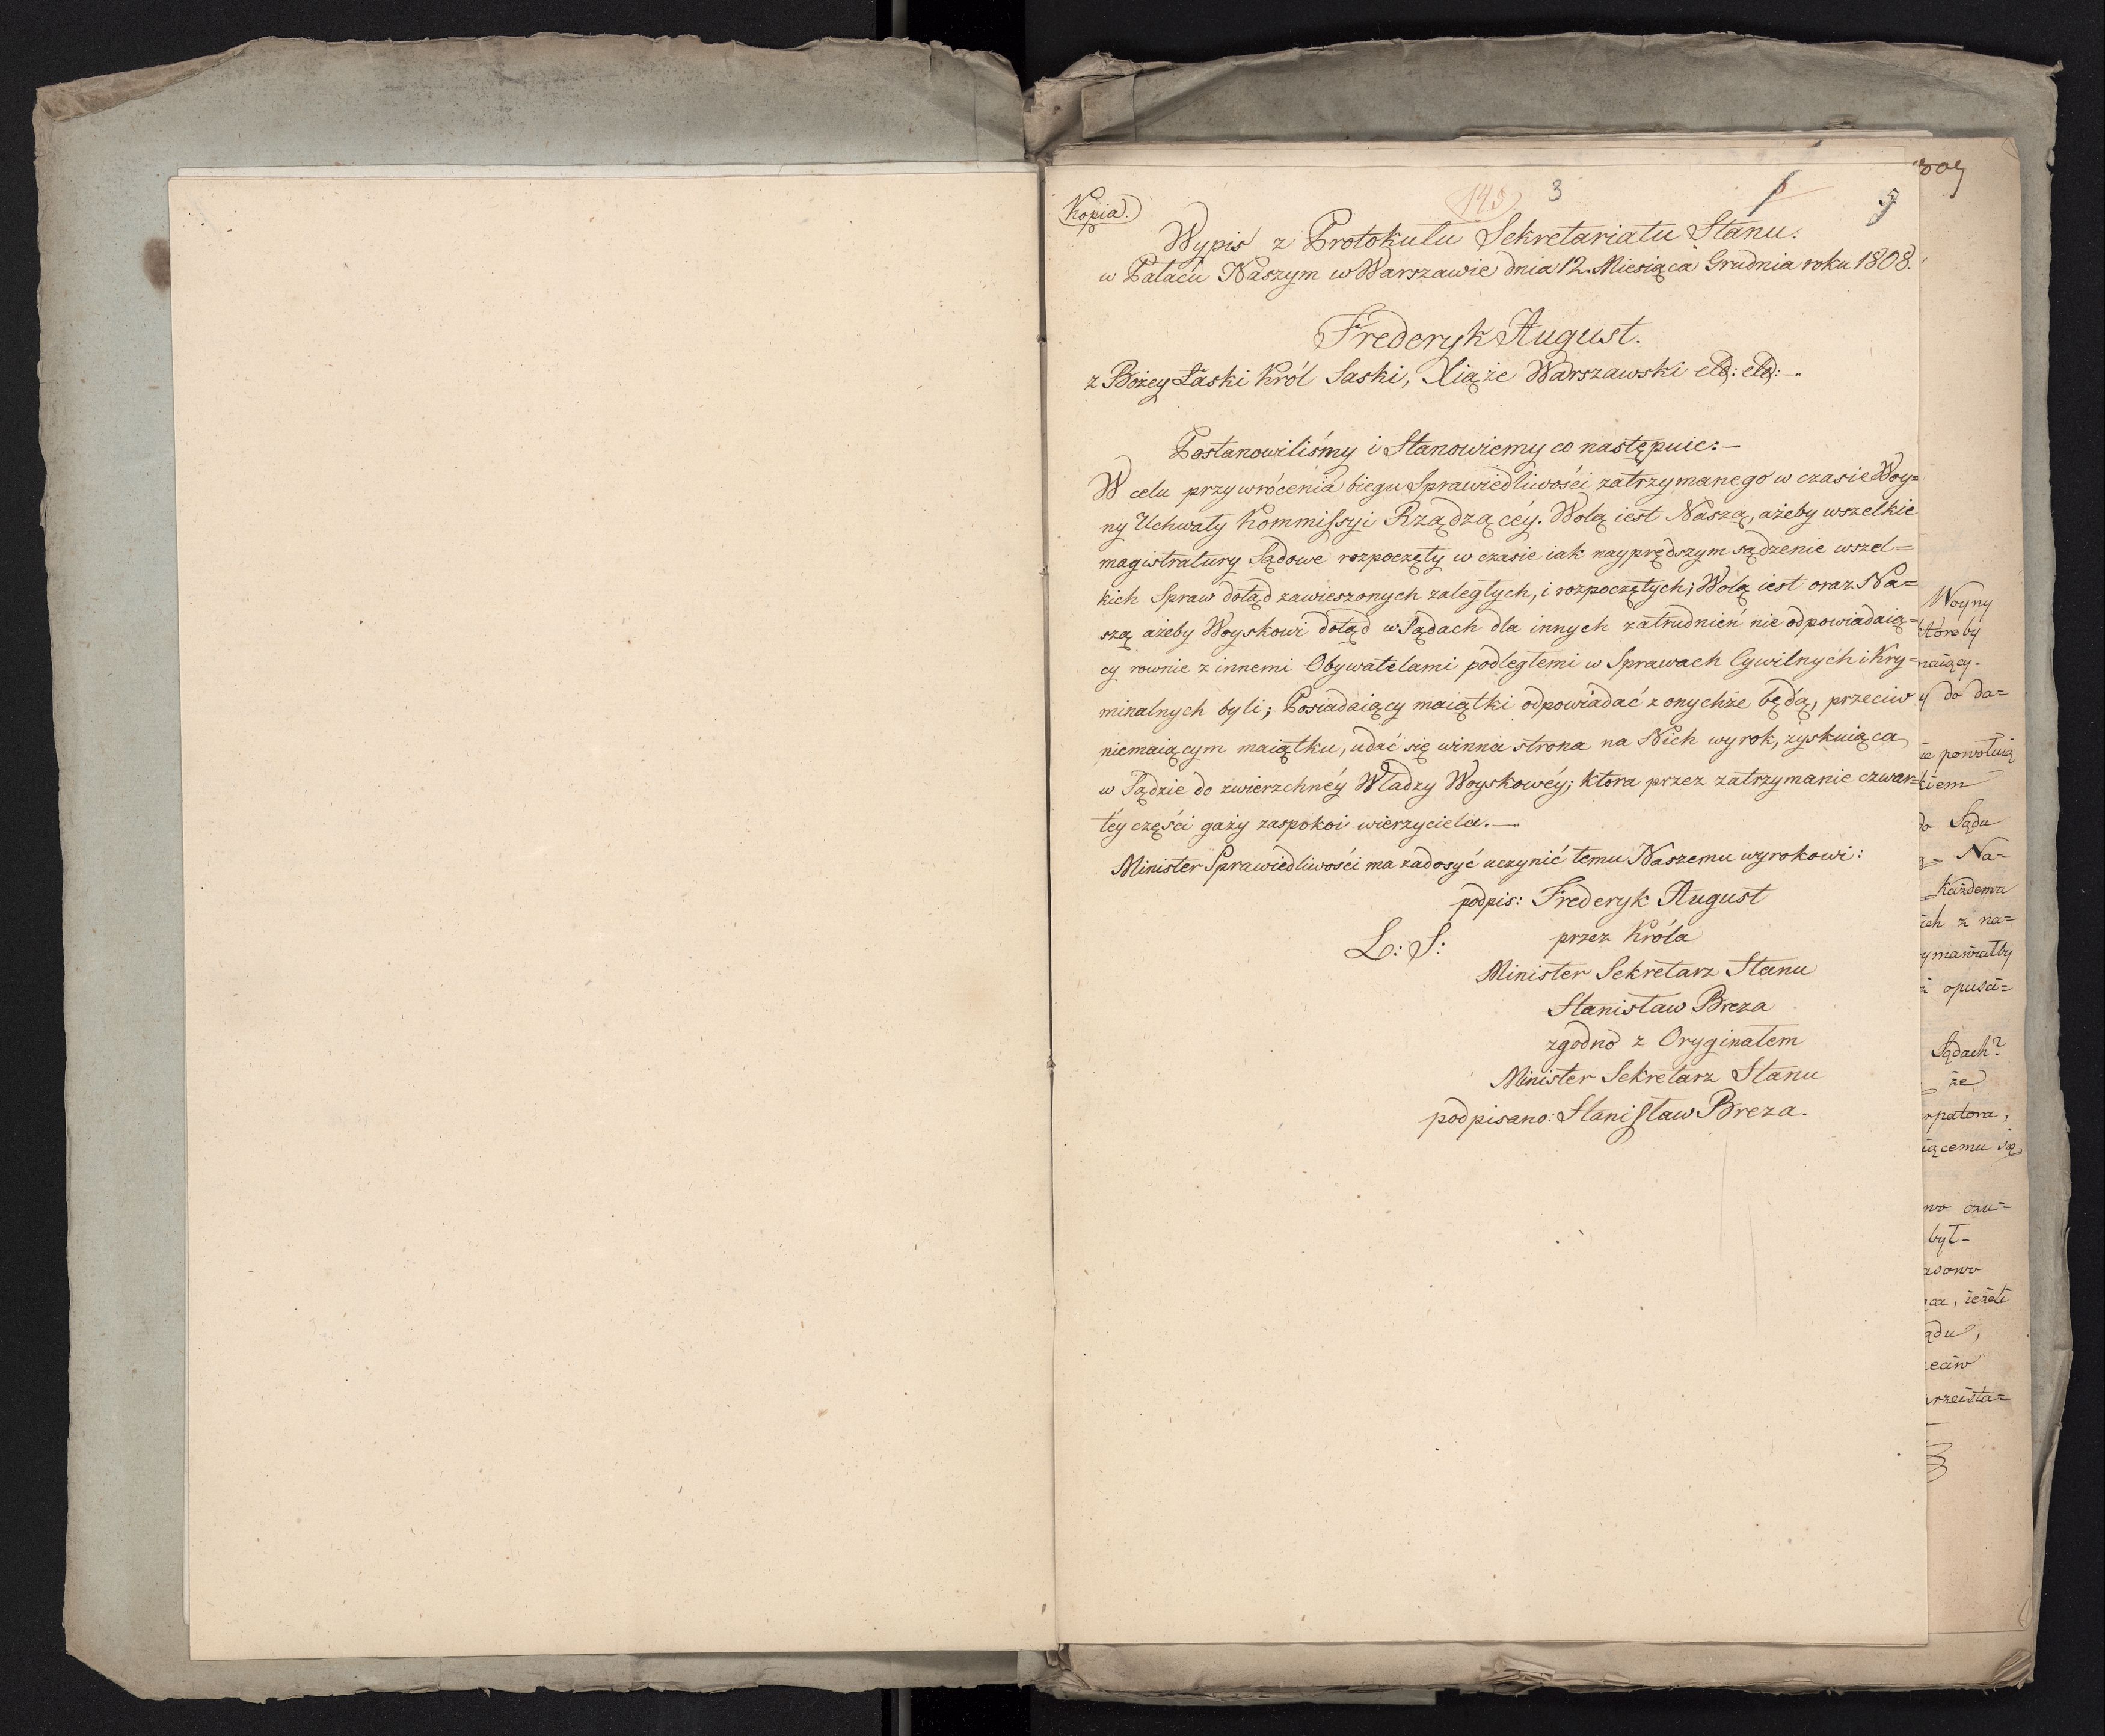 Kopia.
143 3 5
Wypis z Protokułu Sekretariatu Stanu.
w Pałacu Naszym w Warszawie dnia 12. Miesiąca Grudnia roku 1808.
Frederyk August.
z Bożey Łaski Król Saski, Xiąże Warszawski etc: etc: —.
Postanowiliśmy i Stanowiemy co następuie: —
W celu przywrócenia biegu Sprawiedliwości zatrzymanego w czasie Woy=
ny Uchwały Kommissyi Rządzącéy. Wolą iest Naszą, ażeby wszelkie
magistratury Sądowe rozpoczęły w czasie iak nayprędszym sądzenie wszel=
kich Spraw dotąd zawieszonych zaległych, i rozpoczętych; Wolą iest oraz Na=
szą ażeby Woyskowi dotąd w Sądach dla innych zatrudnień nie odpowiadaią=
cy rownie z innemi Obywatelami podległemi w Sprawach Cywilnych i Kry=
minalnych byli; Posiadaiący maiątki odpowiadać z onychże będą, przeciw
niemaiącym maiątku, udać się winna strona na Nich wyrok, zyskuiąca
w Sądzie do zwierzchnéy Władzy Woyskowéy; ktora przez zatrzymanie czwar=
téy części gaży zaspokoi wierzyciela. —.
Minister Sprawiedliwości ma zadosyć uczynić temu Naszemu wyrokowi:
podpis: Frederyk August
L: S: przez Króla
Minister Sekretarz Stanu
Stanisław Breza
zgodno z Oryginałem
Minister Sekretarz Stanu
podpisano: Stanisław Breza.
Woyny
któreby
maiący-
y do da=
ie powołuią
kiem
do Sądu
Na=
każdemu
ich z na=
ymawiałby
i opusci=
Sądach?
że
rpatora,
iącemu się
wo czu=
był-
asowo
ca, ieżeli
ądu,
eciw